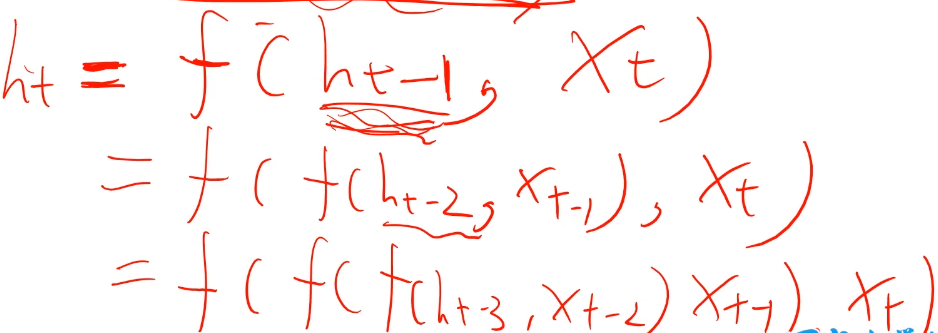 ht = f(ht-1, xt)
= f(f(ht-2, xt-1), xt)
= f(f(f(ht-3, xt-2) xt-1), xt)